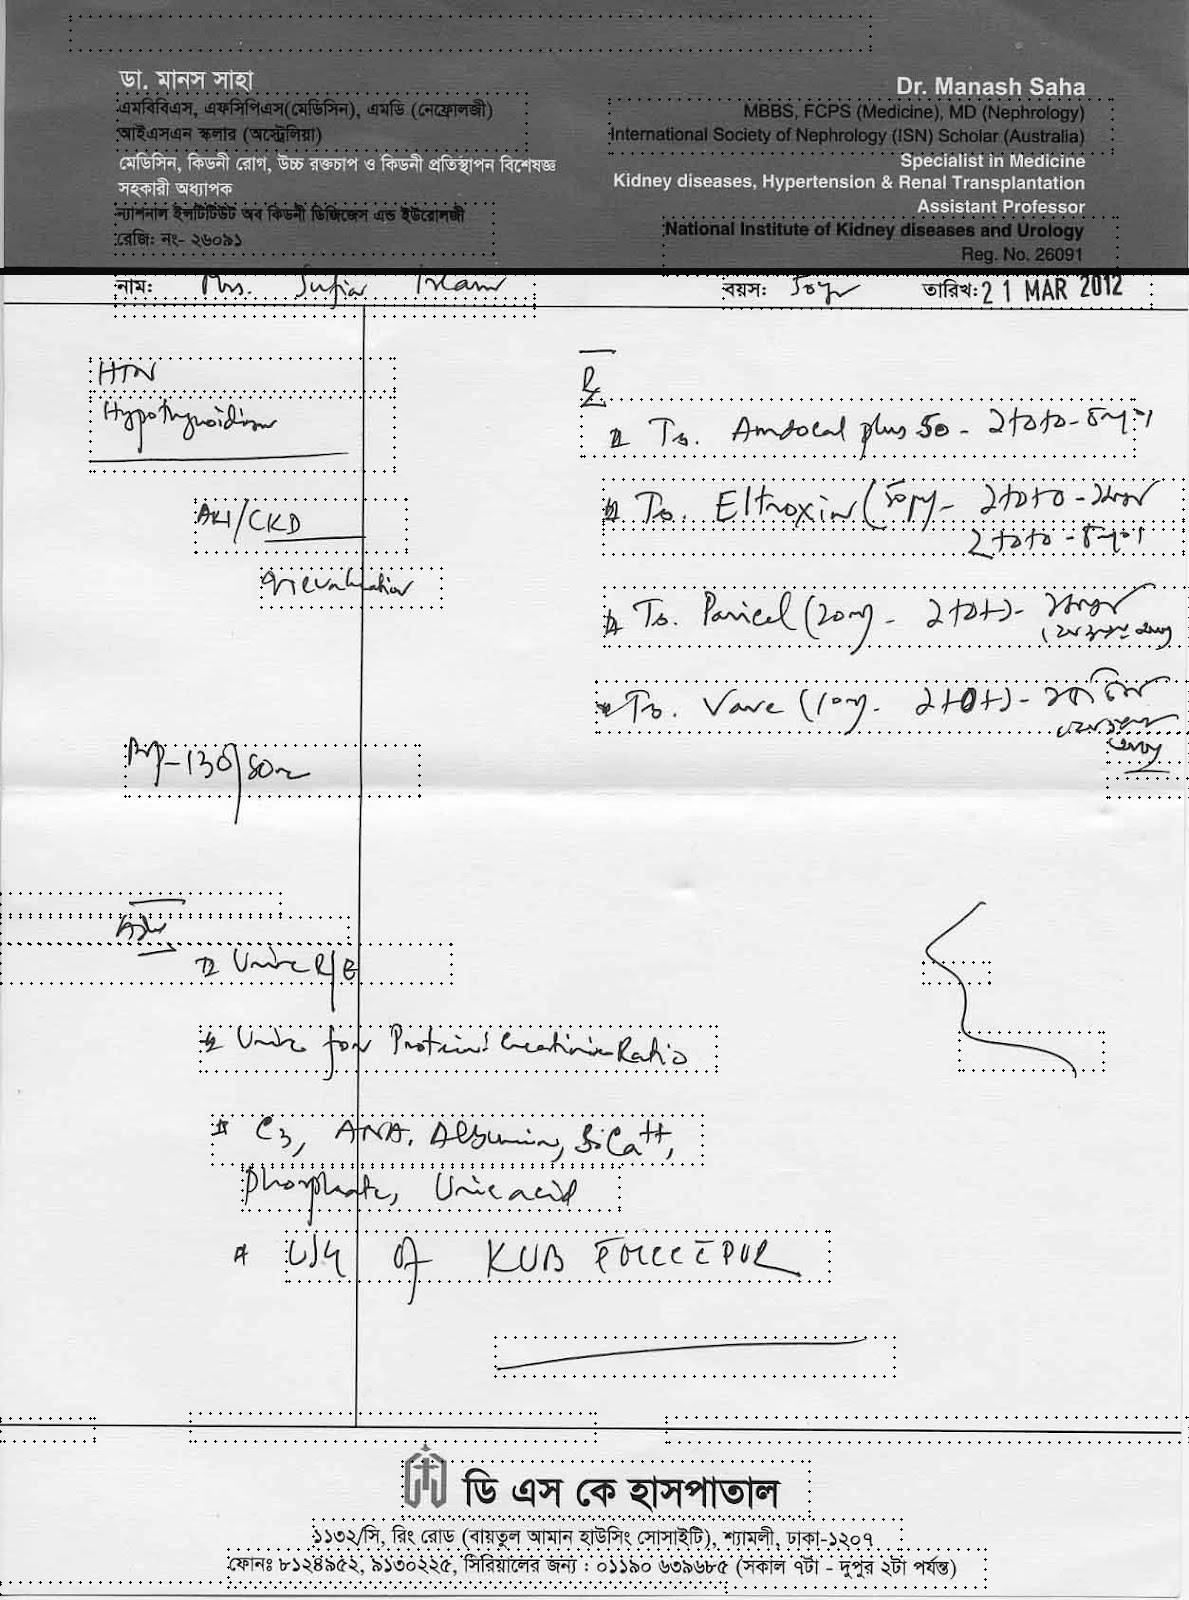 ডা. মানস সাহা
এমবিবিএস, এফসিপিএস(মেডিসিন), এমডি (নেফ্রোলজী)
আইএসএন স্কলার (অস্ট্রেলিয়া)
মেডিসিন, কিডনী রোগ, উচ্চ রক্তচাপ ও কিডনী প্রতিস্থাপন বিশেষজ্ঞ
সহকারী অধ্যাপক
ন্যাশনাল ইনস্টিটিউট অব কিডনী ডিজিজেস এন্ড ইউরোলজী
রেজি: নং- ২৬০৯১
Dr. Manash Saha
MBBS, FCPS (Medicine), MD (Nephrology)
International Society of Nephrology (ISN) Scholar (Australia)
Specialist in Medicine
Kidney diseases, Hypertension & Renal Transplantation
Assistant Professor
National Institute of Kidney diseases and Urology
Reg. No. 26091
নাম: Mrs. Sufia Islam বয়স: তারিখ: 21 MAR 2012
HTN
Hypothyroidism
AKI/CKD
BP-130/80
Adv
Urine R/E
Urine for Protein: Creatinine Ratio
C3, ANA. Albumin, S. Ca++,
phosphate, Uric acid
USG of KUB
Rx
Tb. Amdocal plus 50 - 1+0+0-
Tb. Eltroxin (50 - 1+0+0-
1+0+0-
Tb. Paricel (20mg - 1+0+1-
Tb. Vave (10mg - 1+0+1-
ডি এস কে হাসপাতাল
১১৩২/সি, রিং রোড (বায়তুল আমান হাউসিং সোসাইটি), শ্যামলী, ঢাকা-১২০৭
ফোনঃ ৮১২৪৯৫২, ৯১৩০২২৫, সিরিয়ালের জন্য : ০১১৯০ ৬৩৯৬৮৫ (সকাল ৭টা - দুপুর ২টা পর্যন্ত)